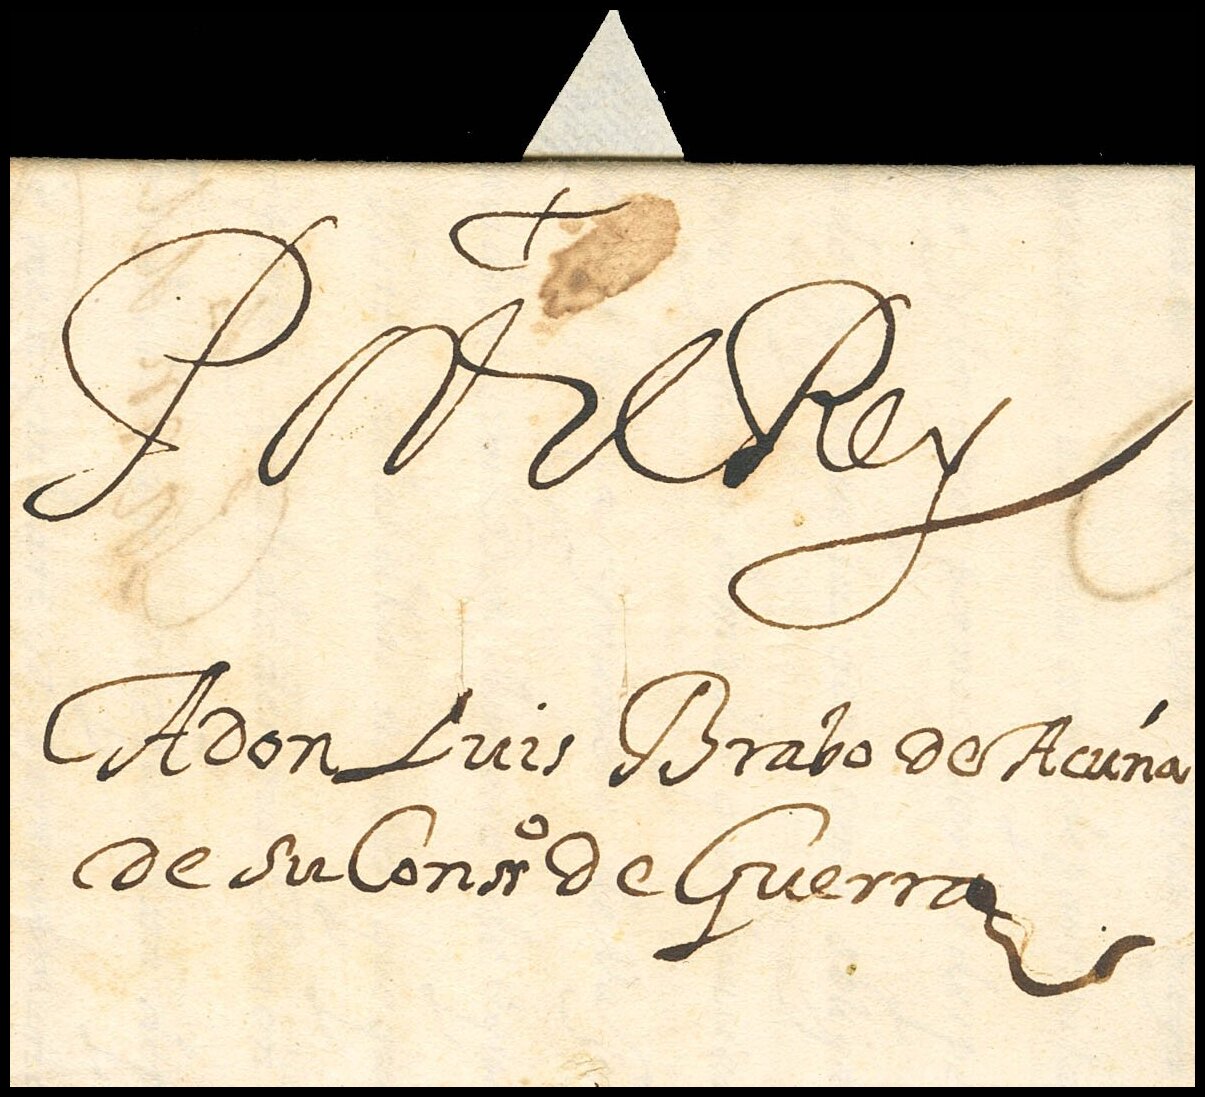 Por el Rey
A don Luis Brabo de Acuña
de su Conso de Guerra